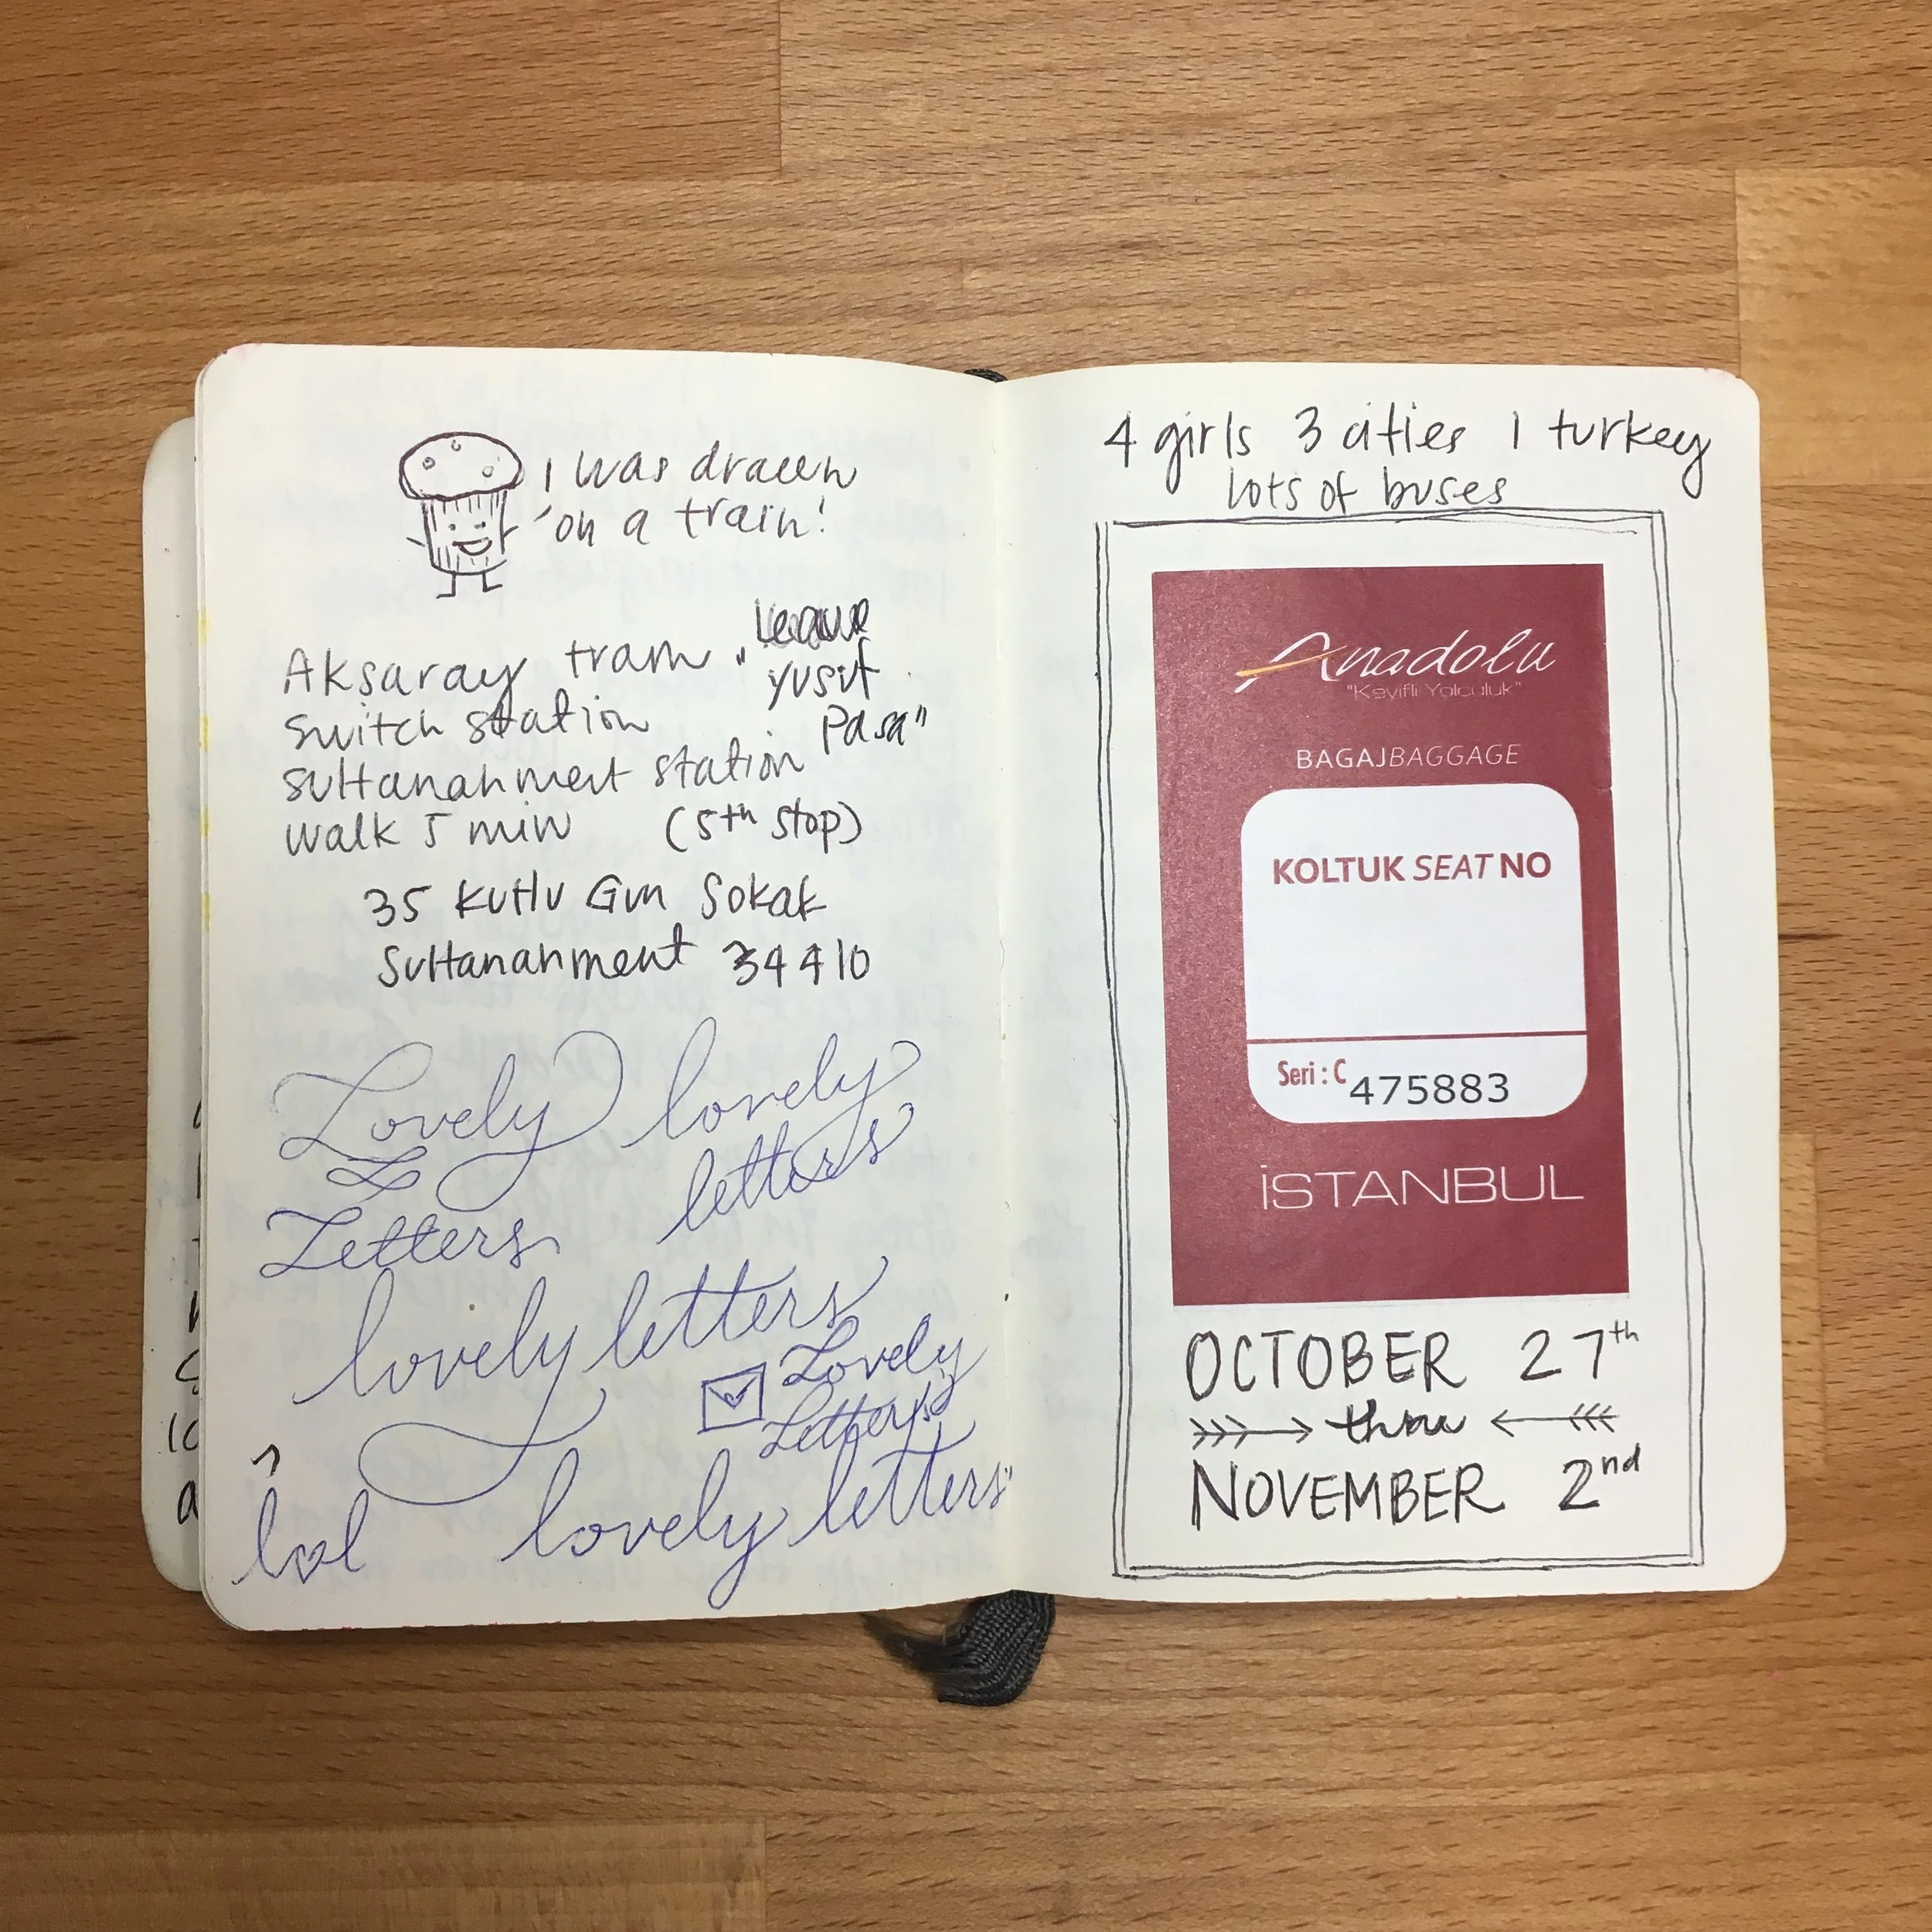 I was drawn
on a train!
Aksaray tram "
yusuf
Pasa"
switch station
sultanahmert station
walk 5 min (5th stop)
35 Kutlu Gun Sokak
Sultanahment 34410
Lovely
L
Letters
lovely
letters
lovely letters
Lovely
Letters
lol
lovely letters
4 girls 3 cities 1 turkey
lots of buses
Anadolu
"Keyifli Yolculuk"
BAGAJBAGGAGE
KOLTUK SEAT NO
Seri : C 475883
İSTANBUL
OCTOBER 27th
thru
NOVEMBER 2nd